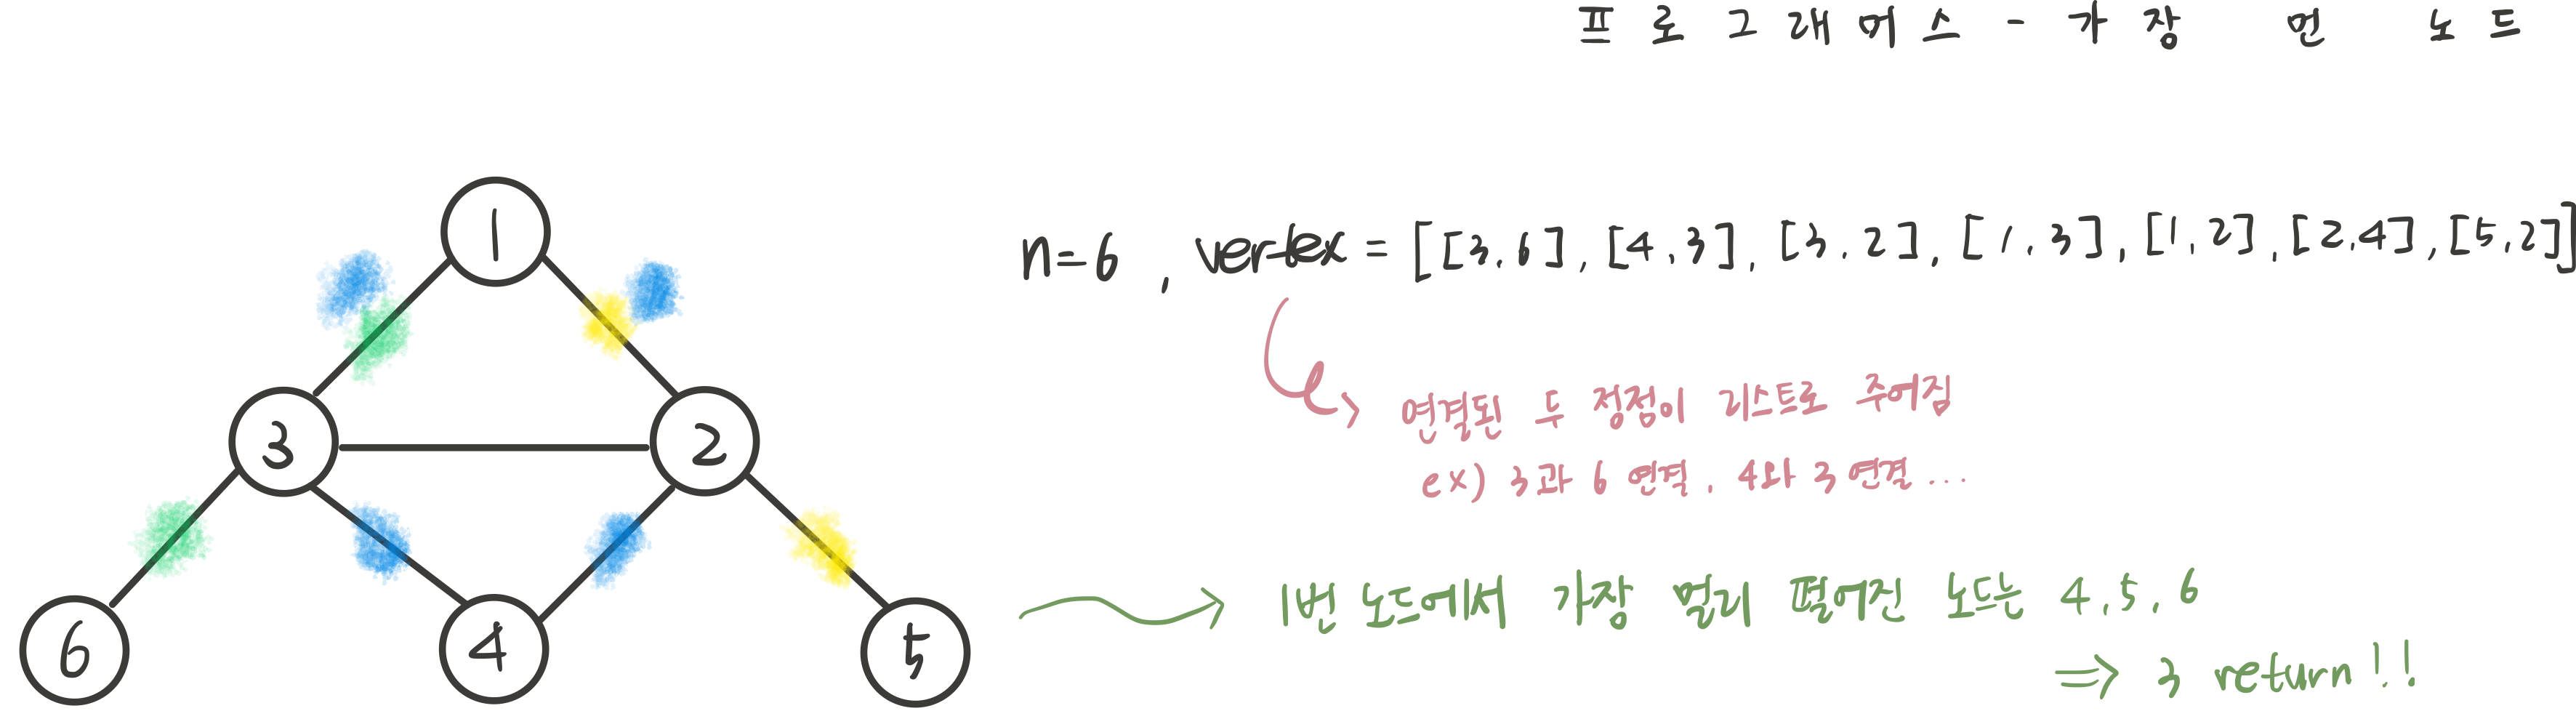 프로그래머스 - 가장 먼 노드
n=6 , vertex = [[3,6], [4,3], [3,2], [1,3], [1,2], [2,4], [5,2]]
연결된 두 정점이 리스트로 주어짐
ex) 3과 6 연결, 4와 3 연결 ...
1번 노드에서 가장 멀리 떨어진 노드는 4,5,6
⇒ 3 return!!
1
3
2
6
4
5